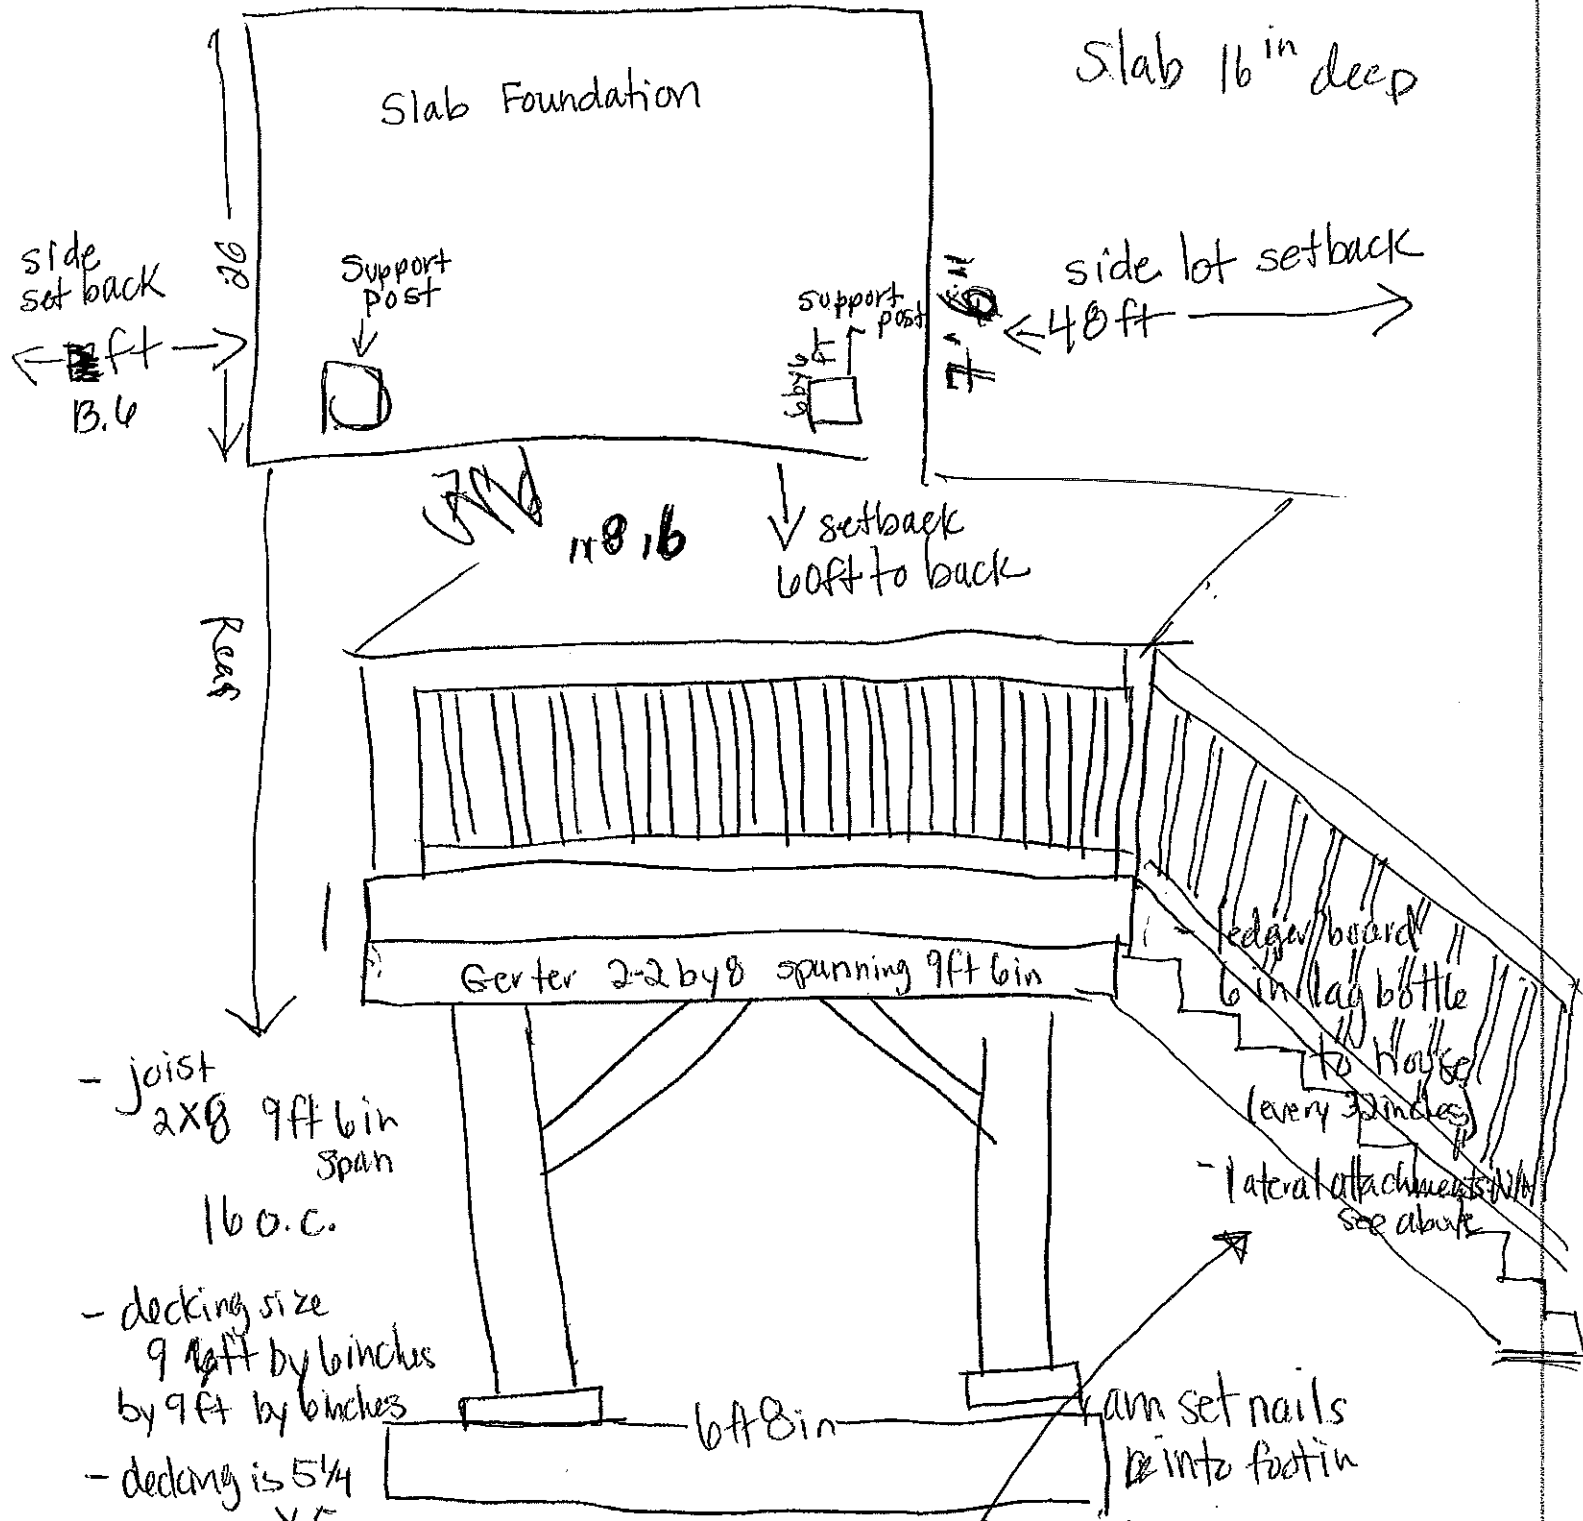 Slab Foundation
Slab 16 in deep
side
set back
ft
13.6
26
support
post
support
post
6 by 6
side lot setback
48 ft
8 16
setback
60ft to back
Rear
Gerter 2-2 by 8 spanning 9ft 6in
- ledger board
6 in lag bottle
to house
(every 32 inches)
- lateral attachments N/A
see above
- joist
2X8 9ft 6in
span
16 o.c.
- decking size
9 ft by 6 inches
by 9ft by 6inches
- decking is 5 1/4
6ft 8in
ram set nails
into footin